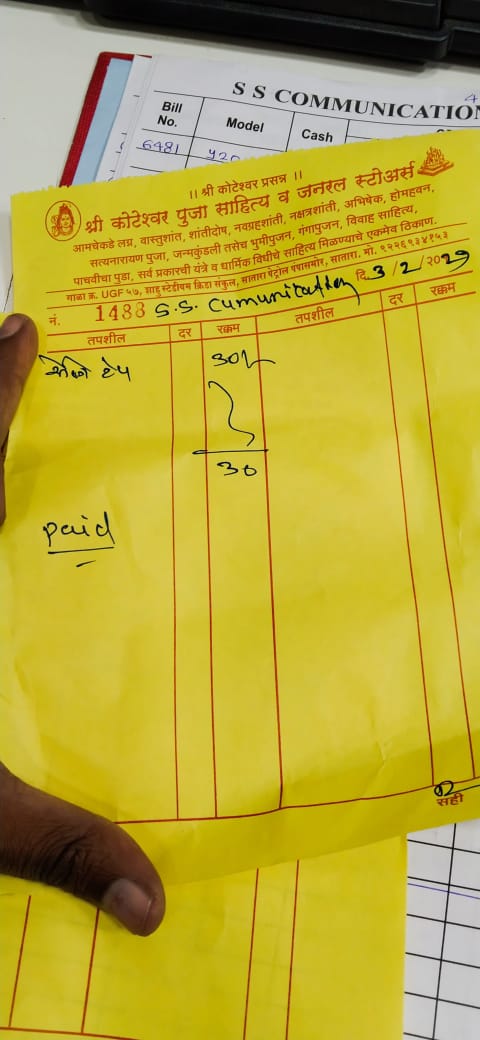 S S COMMUNICATION
Bill No. Model Cash
6481 y20
।। श्री कोटेश्वर प्रसन्न ।।
श्री कोटेश्वर पुजा साहित्य व जनरल स्टोअर्स
आमचेकडे लग्न, वास्तुशांत, शांतीदोष, नवग्रहशांती, नक्षत्रशांती, अभिषेक, होमहवन,
सत्यनारायण पुजा, जन्मकुंडली तसेच भुमीपुजन, गंगापुजन, विवाह साहित्य,
पाचवीचा पुडा, सर्व प्रकारची यंत्रे व धार्मिक विधीचे साहित्य मिळण्याचे एकमेव ठिकाण.
गाळा क्र. UGF ५७, शाहु स्टेडीयम क्रिडा संकुल, सातारा पेट्रोल पंपासमोर, सातारा. मो. ९२२६९३४१५३
नं. 1488 S.S. Cumunitation दि. 3/2/२०29
तपशील दर रक्कम तपशील दर रक्कम
टेप 30/-
30
paid
सही